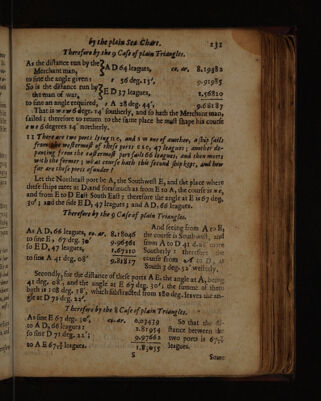 by the plain Sea Chart. 131
Therefore by the 9 Case of plain Triangles.
As the distance run by the
Merchant man, } A D 64 leagues, co. ar. 8.19382
to sine the angle given : 56 deg. 15′. 9.91985
So is the distance run by
the man of war, } E D 37 leagues, 1.56820
to sine an angle required, : A 28 deg. 44′. 9.68187
That is w o w 6 deg. 14′ southerly, and so hath the Merchant man
sailed ; therefore to return to the same place he must shape his course
e n e 6 degrees 14′ northerly.
11 There are two ports lying n e, and s w one of another, a ship sails
from the westermost of these ports e s e, 47 leagues ; another de-
parting from the eastermost port sails 66 leagues, and then meets
with the former ; what course hath this second ship kept, and how
far are these ports asunder ?
Let the Northeast port be A, the Southwest E, and the place where
these ships meet at D, and for as much as from E to A, the course is N E,
and from E to D East South East ; therefore the angle at E is 67 deg.
30′ ; and the side E D, 47 leagues ; and A D, 66 leagues.
Therefore by the 9 Case of plain Triangles.
As A D, 66 leagues, co. ar. 8.18046
to sine E, 67 deg. 30′ 9.96561
so E D, 47 leagues, 1.67210
to sine A 41 deg. 08′ 9.81817
And seeing from A to E,
the course is South-west, and
from A to D 41 d. 08′ more
Southerly : therefore the
course from A to D, is
South 3 deg. 52′ westerly.
Secondly, for the distance of these ports A E, the angle at A, being
41 deg. 08′, and the angle at E 67 deg. 30′ ; the summe of them
both is 108 deg. 38′, which substracted from 180 deg. leaves the an-
gle at D 71 deg. 22′.
Therefore by the 8 Case of plain Triangles.
As sine E 67 deg. 30′, co. ar. 0.03439
to A D, 66 leagues : 1.81954
so sine D 71 deg. 22′ ; 9.97662
to A E 67 leagues. 1.83055
So that the di-
stance between the
two ports is 67
leagues.
S